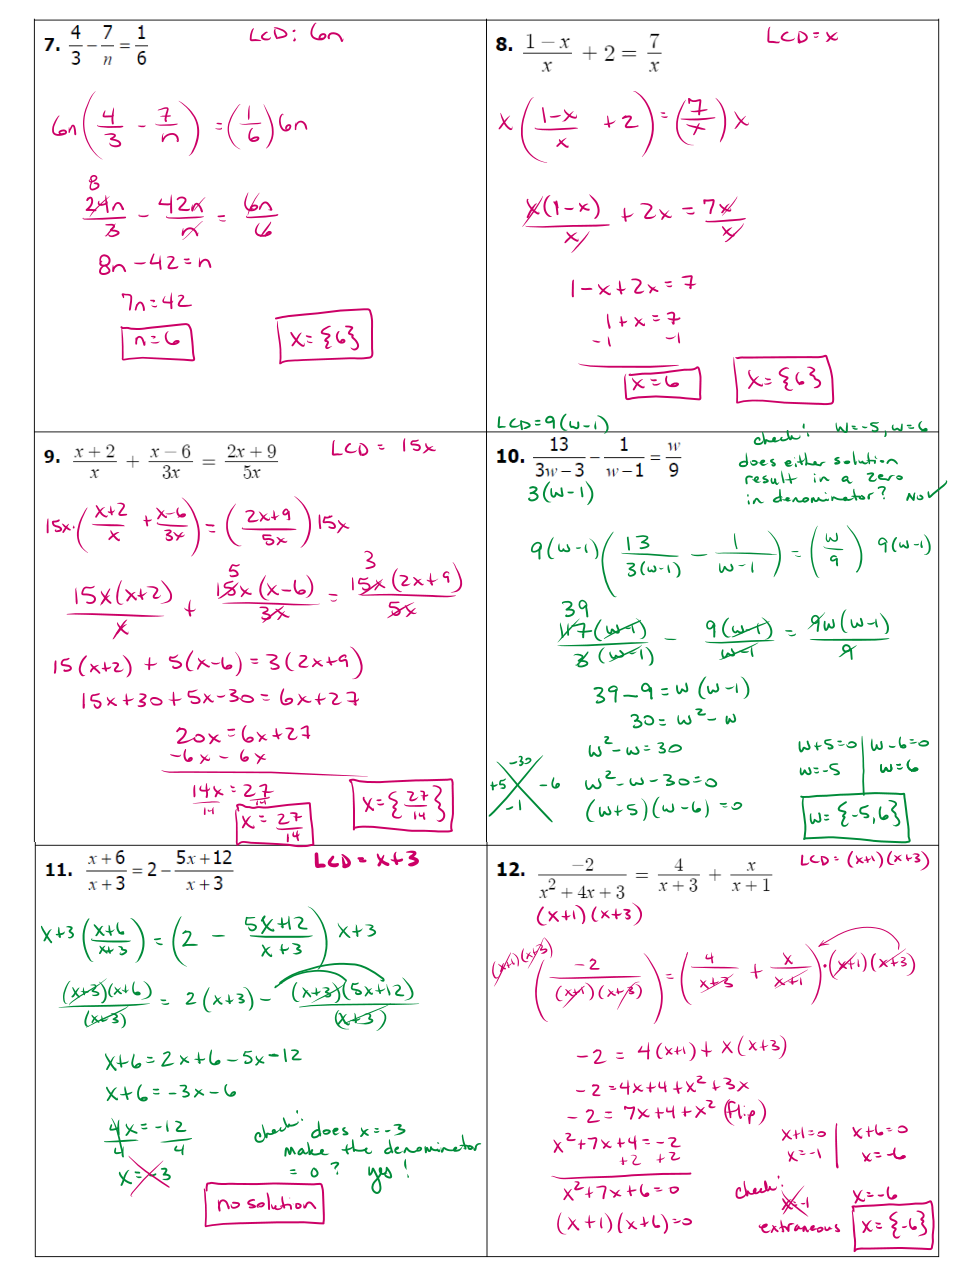 7. 4/3 - 7/n = 1/6
LCD: 6n
6n(4/3 - 7/n) = (1/6)6n
8
24n/3 - 42n/n = 6n/6
8n - 42 = n
7n = 42
n = 6
x = {6}
8. (1 - x)/x + 2 = 7/x
LCD = x
x((1-x)/x + 2) = (7/x) x
x(1-x)/x + 2x = 7x/x
1 - x + 2x = 7
1 + x = 7
-1 -1
x = 6
x = {6}
9. (x + 2)/x + (x - 6)/3x = (2x + 9)/5x
LCD = 15x
15x·((x+2)/x + (x-6)/3x) = ((2x+9)/5x) 15x
5 3
15x(x+2)/x + 15x(x-6)/3x = 15x(2x+9)/5x
15(x+2) + 5(x-6) = 3(2x+9)
15x + 30 + 5x - 30 = 6x + 27
20x = 6x + 27
-6x - 6x
14x = 27
14 14
x = 27/14
x = {27/14}
LCD = 9(w-1)
10. 13/(3w - 3) - 1/(w - 1) = w/9
3(w-1)
check! w=-5, w=6
does either solution
result in a zero
in denominator? No ✓
9(w-1)(13/3(w-1) - 1/(w-1)) = (w/9) 9(w-1)
39
117(w-1)/3(w-1) - 9(w-1)/(w-1) = 9w(w-1)/9
39 - 9 = w(w-1)
30 = w² - w
w² - w = 30
-30
+5 -6
-1
w² - w - 30 = 0
(w+5)(w-6) = 0
w+5=0 | w-6=0
w=-5 | w=6
w = {-5, 6}
11. (x + 6)/(x + 3) = 2 - (5x + 12)/(x + 3)
LCD = x+3
x+3((x+6)/(x+3)) = (2 - (5x+12)/(x+3)) x+3
(x+3)(x+6)/(x+3) = 2(x+3) - (x+3)(5x+12)/(x+3)
x+6 = 2x+6 - 5x - 12
x+6 = -3x - 6
4x = -12
4 4
x = -3
check! does x = -3
make the denominator
= 0? yes!
no solution
12. -2/(x² + 4x + 3) = 4/(x + 3) + x/(x + 1)
LCD = (x+1)(x+3)
(x+1)(x+3)
(x+1)(x+3)(-2/(x+1)(x+3)) = (4/(x+3) + x/(x+1))·(x+1)(x+3)
-2 = 4(x+1) + x(x+3)
-2 = 4x+4+x²+3x
-2 = 7x+4+x² (flip)
x²+7x+4 = -2
+2 +2
x²+7x+6 = 0
(x+1)(x+6)=0
x+1=0 | x+6=0
x=-1 | x=-6
check! x=-1 x=-6
extraneous
x = {-6}